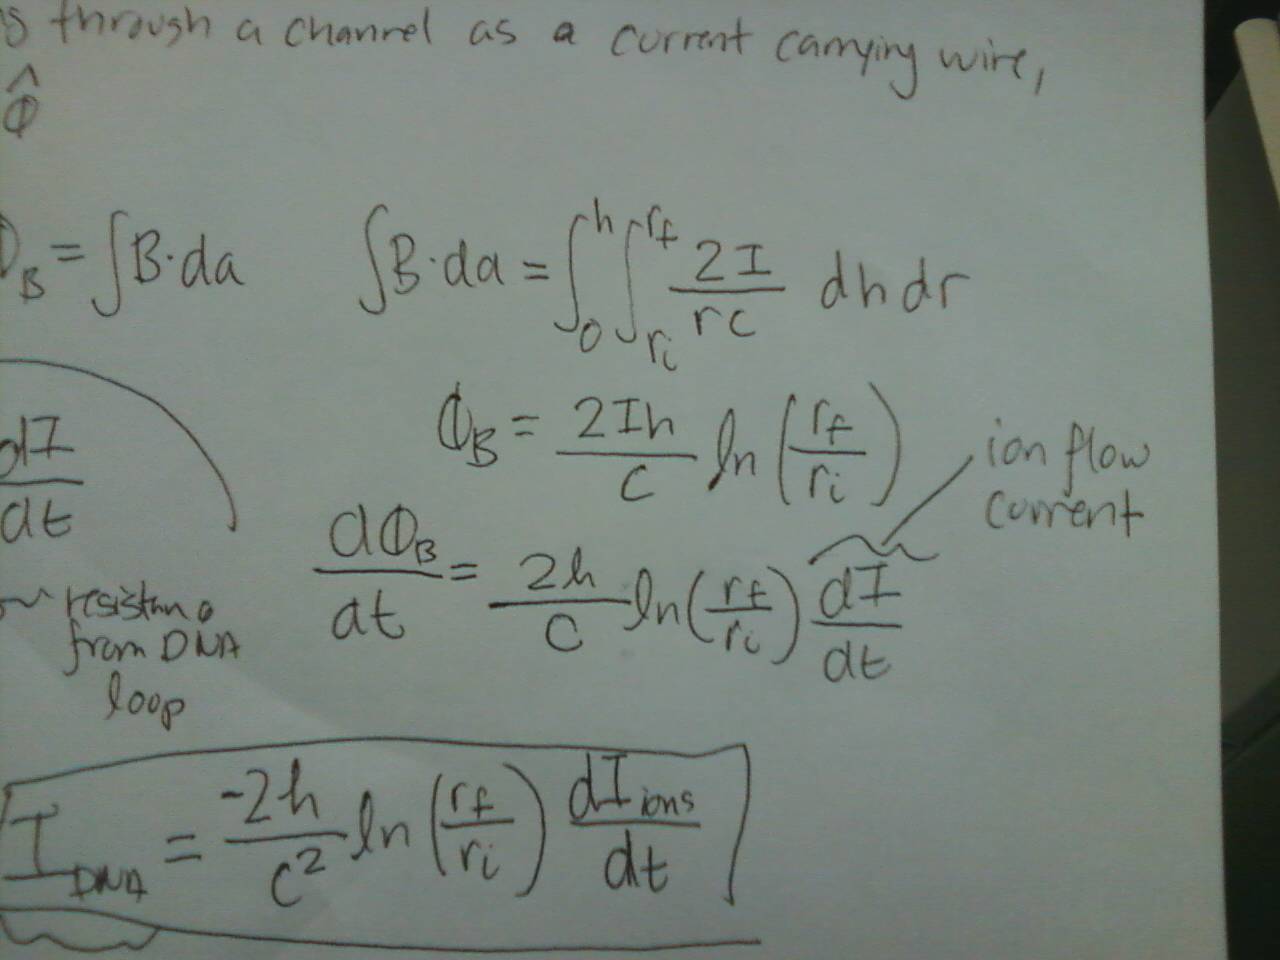 through a channel as a current carrying wire,
Φ̂
Φ_B = ∫B·da ∫B·da = ∫₀^h ∫_{r_i}^{r_f} 2I/rc dh dr
Φ_B = 2Ih/c ln(r_f/r_i)
ion flow
current
dI/dt
dΦ_B/dt = 2h/c ln(r_f/r_i) dI/dt
from DNA
loop
I_DNA = -2h/c² ln(r_f/r_i) dI_ions/dt